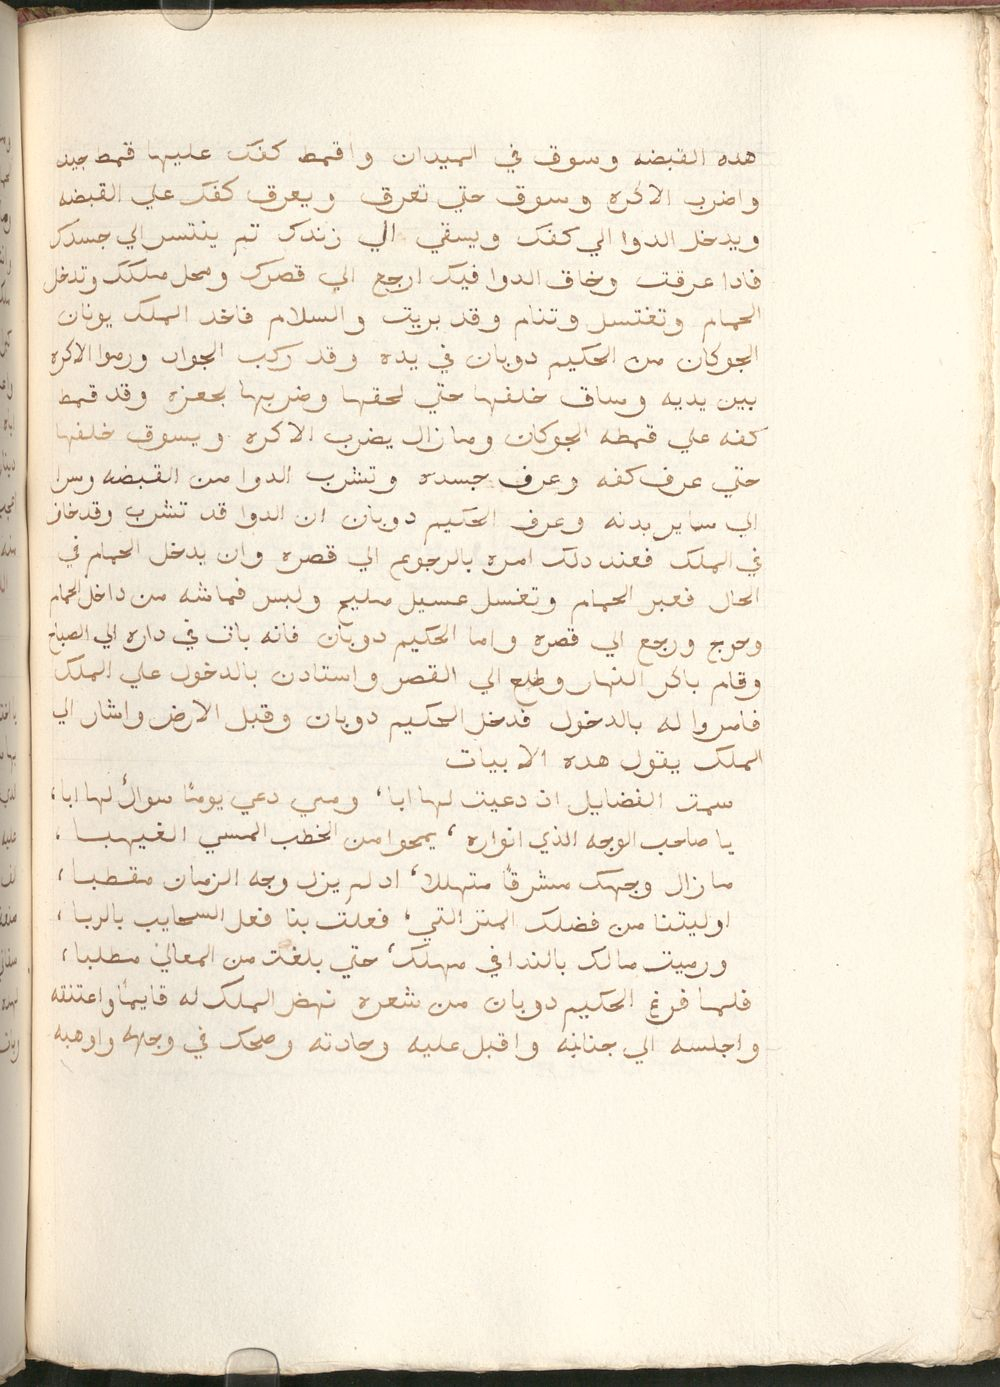 هده القبضه وسوق في الميدان واقمط كفك عليها قمط جيد
واضرب الاكره وسوق حتي تعرق ويعرق كفك علي القبضه
ويدخل الدوا الي كفك ويسقي الي زندك تم ينتسر الي جسدك
فادا عرقت وخاق الدوا فيك ارجع الي قصرك ومحل ملكك وتدخل
الحمام وتغتسل وتنام وقد بريت والسلام فاخد الملك يونان
الجوكان من الحكيم دوبان في يده وقد ركب الجواد ورموا الاكره
بين يديه وساق خلفها حتي لحقها وضربها بجعزه وقد قمط
كفه علي قمطه الجوكان وما زال يضرب الاكره ويسوق خلفها
حتي عرف كفه وعرف جسده وتشرب الدوا من القبضه وسرا
الي ساير بدنه وعرف الحكيم دوبان ان الدوا قد تشرب وقد خاز
في الملك فعند دلك امره بالرجوع الي قصره وان يدخل الحمام في
الحال فعبر الحمام وتغسل عسيل مليح ولبس قماشه من داخل الحمام
وخرج ورجع الي قصره واما الحكيم دوبان فانه بات في داره الي الصباح
وقام باكر النهار وطلع الي القصر واستادن بالدخول علي الملك
فامروا له بالدخول فدخل الحكيم دوبان وقبل الارض واشار الي
الملك يقول هده الابيات
سمت الفضايل اد دعيت لها ابا، ومتي دعي يومًا سواك لها ابا،
يا صاحب الوجه الذي انواره، يمحوا من الخطب المسي الغيهبا،
ما زال وجهك مشرقًا متهللا، اد لم يزل وجه الزمان مقطبا،
اوليتنا من فضلك المنن التي، فعلت بنا فعل السحايب بالربا،
ورميت مالك بالندا في مهلك، حتي بلغت من المعالي مطلبا،
فلما فرغ الحكيم دوبان من شعره نهض الملك له قايمًا واعتنقه
واجلسه الي جنابه واقبل عليه وحادته وضحك في وجهه واوهبه